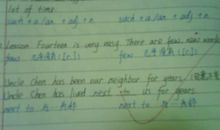 lot of time.
such + a/an + adj. + n. such + a/an + adj + n
Lesson Fourteen is very easy. There are few new words
few 几乎没有 ([C]) few 几乎没有 ([C])
Uncle Chen has been our neighbor for years.
Uncle Chen has lived next to us for years
next to next to